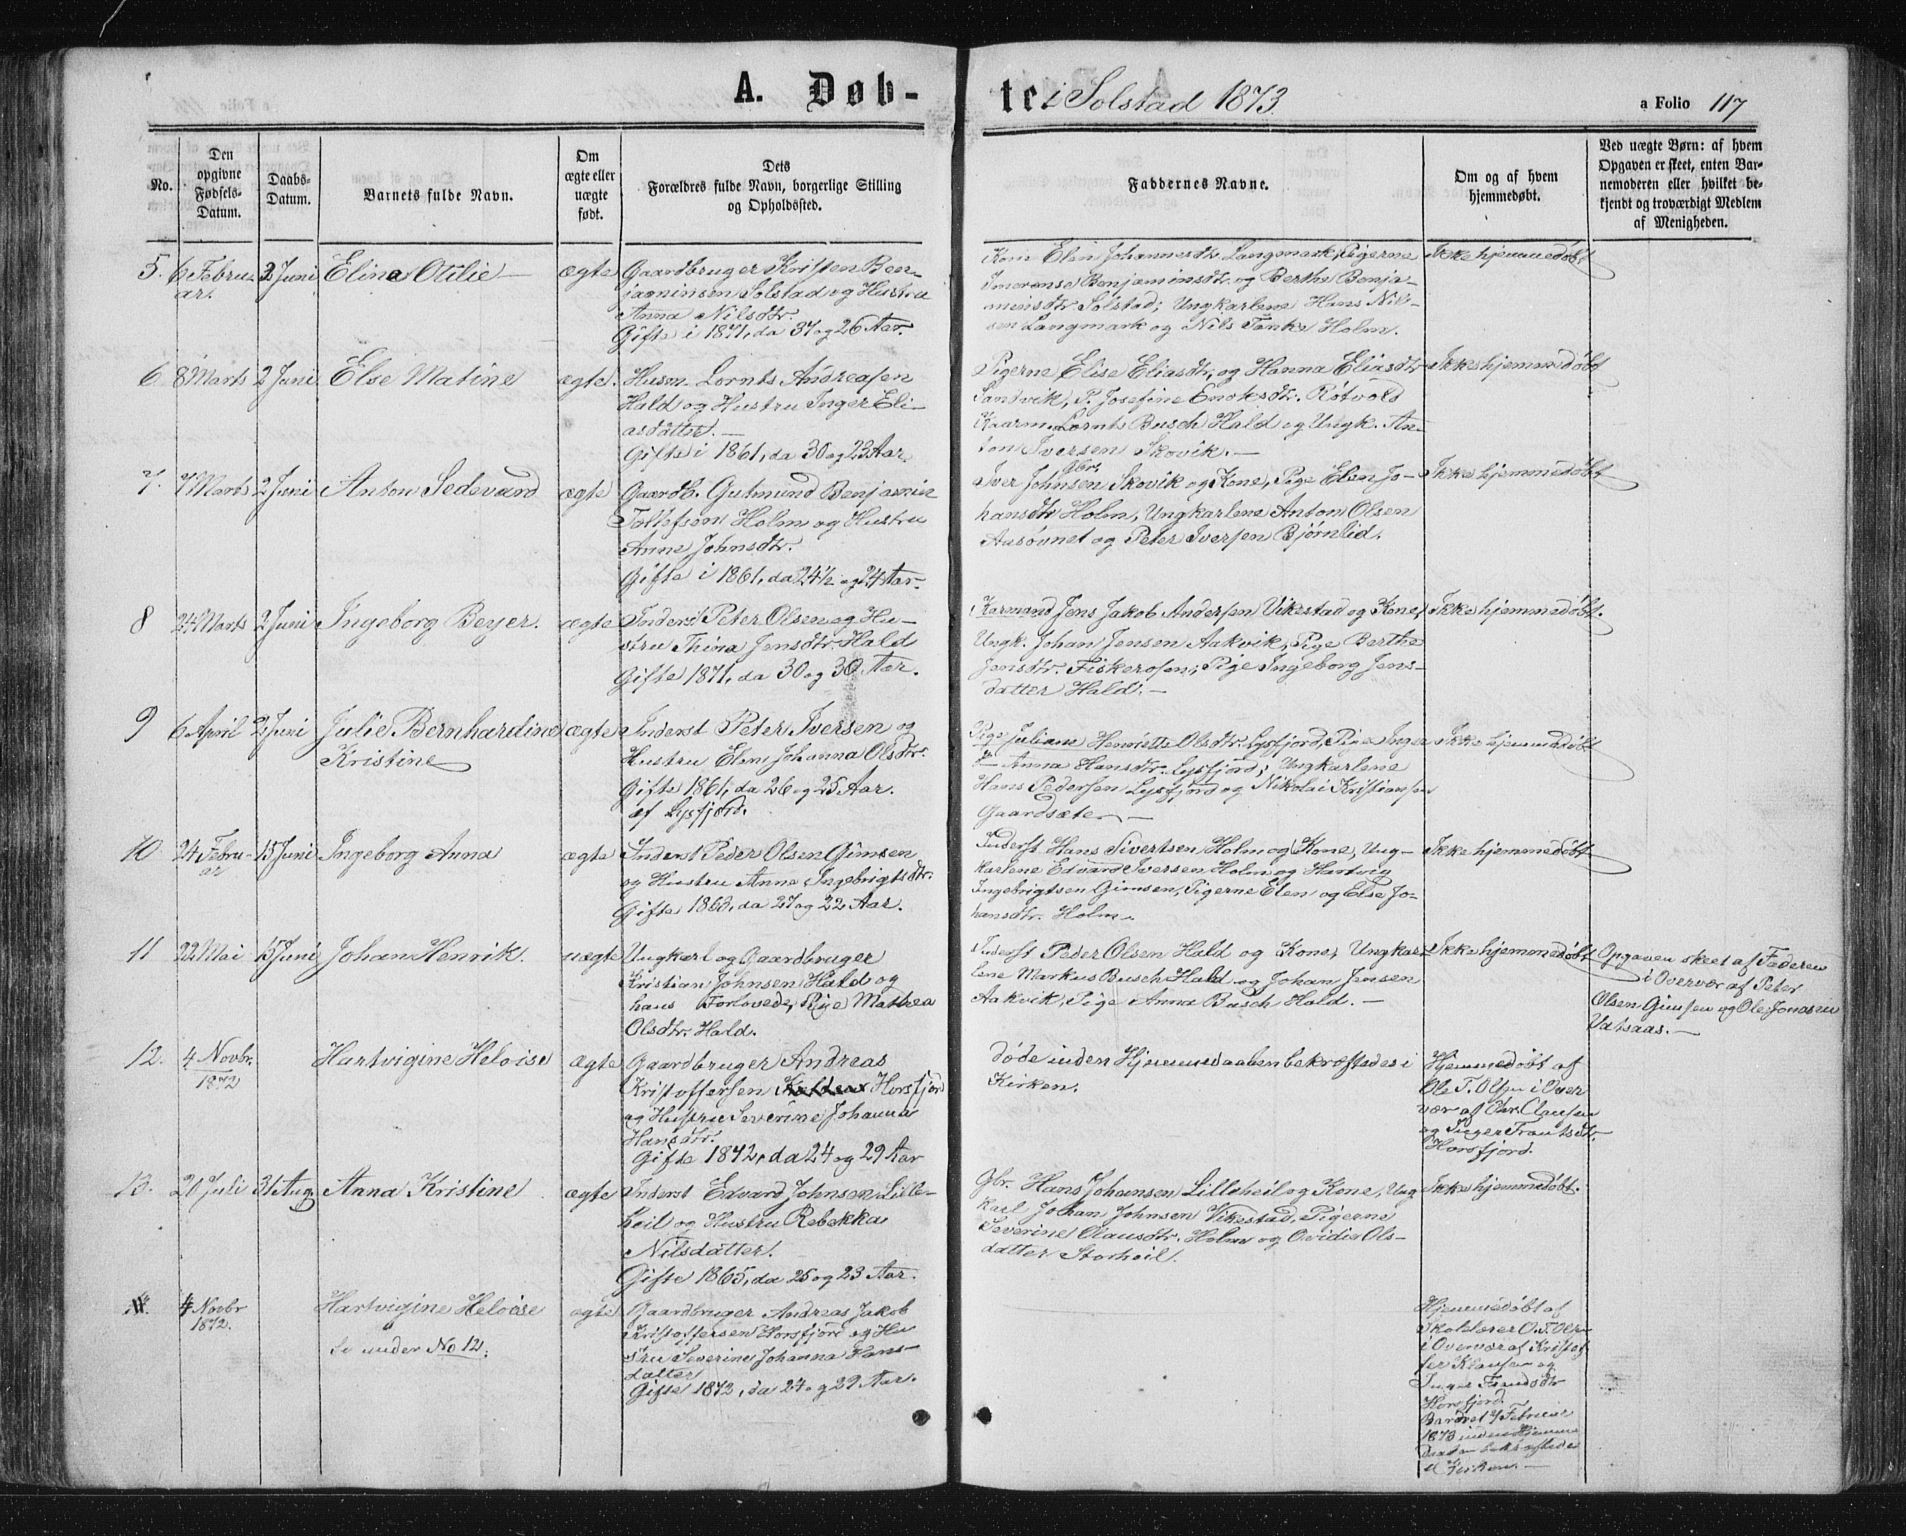 A. Døb-
te i Solstad 1873.
a Folio 117
No.
Den
opgivne
Fødsels-
Datum.
Daabs-
Datum.
Barnets fulde Navn.
Om
ægte eller
uægte
født.
Dets
Forældres fulde Navn, borgerlige Stilling
og Opholdssted.
Faddernes Navne.
Om og af hvem
hjemmedøbt.
Ved uægte Børn: af hvem
Opgaven er skeet, enten Bar-
nemoderen eller hvilket be-
kjendt og troværdigt Medlem
af Menigheden.
5. 6 Febru-
ar.
2 Juni
Elina Otilie
ægte
Gaardbruger Kristen Ben-
jaminsen Solstad og Hustru
Anna Nilsdtr.
Gifte i 1871, da 37 og 26 Aar.
Kone Elen Johannesdtr Langmark, Pigerne
Benjaminsdtr. og Berthe Benja-
minsdtr Solstad; Ungkarlene Hans Nil-
sen Langmark og Nils Tanke Holm.
Ikke hjemmedøbt
6 8 Marts 2 Juni
Else Matine
ægte.
Husm. Lornts Andreasen
Hald og Hustru Inger Eli-
asdatter. —
Gifte i 1861, da 30 og 23 Aar.
Pigerne Elise Eliasdtr, og Hanna Eliasdtr
Sandvik, P. Josefine Enoksdtr. Røtvold
Kaarm. Lornts Busch Hald og Ungk. An-
ton Iversen Skovik. —
Ikke hjemmedøbt
7. 7 Marts 2 Juni
Anton Sedevard
ægte
Gaardb. Gutmund Benjamin
Tollefsen Holm og Hustru
Anne Johnsdtr.
Gifte i 1861, da 24½ og 24 Aar.
Gbr.
Iver Johnsen Skovik og Kone, Pige Elen Jo-
hansdtr Holm, Ungkarlene Anton Olsen
Aasøvnet og Peter Iversen Bjørnlid.
Ikke hjemmedøbt
8 24 Marts 2 Juni
Ingeborg Beyer.
ægte
Inderst Peter Olsen og Hu-
stru Thina Jensdtr. Hald
Gifte 1871, da 30 og 30 Aar.
Karmand Jens Jakob Andersen Vikestad og Kone,
Ungk. Johan Jensen Aakvik, Pige Berthe
Jensdtr. Fiskerosen; Pige Ingeborg Jens-
datter Hald. —
Ikke hjemmedøbt.
9 6 April 2 Juni
Julie Bernhardine
Kristine
ægte
Inderst Peter Iversen og
Hustru Elen Johanna Olsdtr.
Gifte 1861, da 26 og 25 Aar.
af Lysfjord.
Pige Juliane Henriette Olsdtr. Lysfjord, Pige Inger
Anna Hansdtr. Lysfjord; Ungkarlene
Hans Pedersen Lysfjord og Nikolai Kristiansen
Gaardsæter —
Ikke hjemmedøbt
10 24 Febru-
ar
15 Juni
Ingeborg Anna
ægte
Inderst Peder Olsen Gimsen
og Hustru Anne Ingebrigtsdtr.
Gifte 1863, da 27 og 22 Aar.
Inderst Hans Sivertsen Holm og Kone, Ung-
karlene Edvard Iversen Holm og Hartvig
Ingebrigtsen Gimsen, Pigerne Elen og Else Jo-
hansdtr. Holm.
Ikke hjemmedøbt
11 22 Mai 15 Juni
Johan Henrik.
uægte
Ungkarl og Gaardbruger
Kristian Johnsen Hald og
hans Forlovede, Pige Mathea
Olsdtr. Hald.
Inderst Peder Olsen Hald og Kone, Ungkar-
lene Markus Busch Hald og Johan Jensen
Aakvik, Pige Anna Busch Hald. —
Ikke hjemmedøbt
Opgaven skeet af Faderen
i Overvær af Peter
Olsen Gimsen og Ole Jonasen
Vatsaas. —
12. 4 Novbr.
1872
Hartvigine Heloise
ægte
Gaardbruger Andreas
Kristoffersen Horsfjord
og Hustru Severine Johanna
Hansdtr.
Gifte 1872, da 24 og 29 Aar
døde inden Hjemmedaaben bekræftedes i
Kirken.
Hjemmedøbt af
Ole T. Olsen i Over
vær af Chr. Clausen
og Inger Trantsdtr.
Horsfjord.
13. 20 Juli 31 Aug.
Anna Kristine
ægte
Inderst Edvard Johnsen Lille-
heil og Hustru Rebekka
Nilsdatter.
Gifte 1865, da 25 og 23 Aar.
Gbr. Hans Johansen Lilleheil og Kone, Ung
karl Johan Johnsen Vikestad, Pigerne
Severine Olausdtr. Holm og Ovidia Ols-
datter Storheil.
Ikke hjemmedøbt.
4 Novbr
1872.
Hartvigine Heloise
Se under No 12.
ægte
Gaardbruger Andreas Jakob
Kristoffersen Horsfjord og Hu
stru Severine Johanna Hans-
datter
Gifte 1872, da 24 og 29 Aar.
Hjemmedøbt af
Skolelærer O. T. Olsen
i Overvær af Kristof
fer Klausen og
Inger
Horsfjord.
Barnet Februar
1873 inden Hjemme
daaben bekræftedes
i Kirken. —